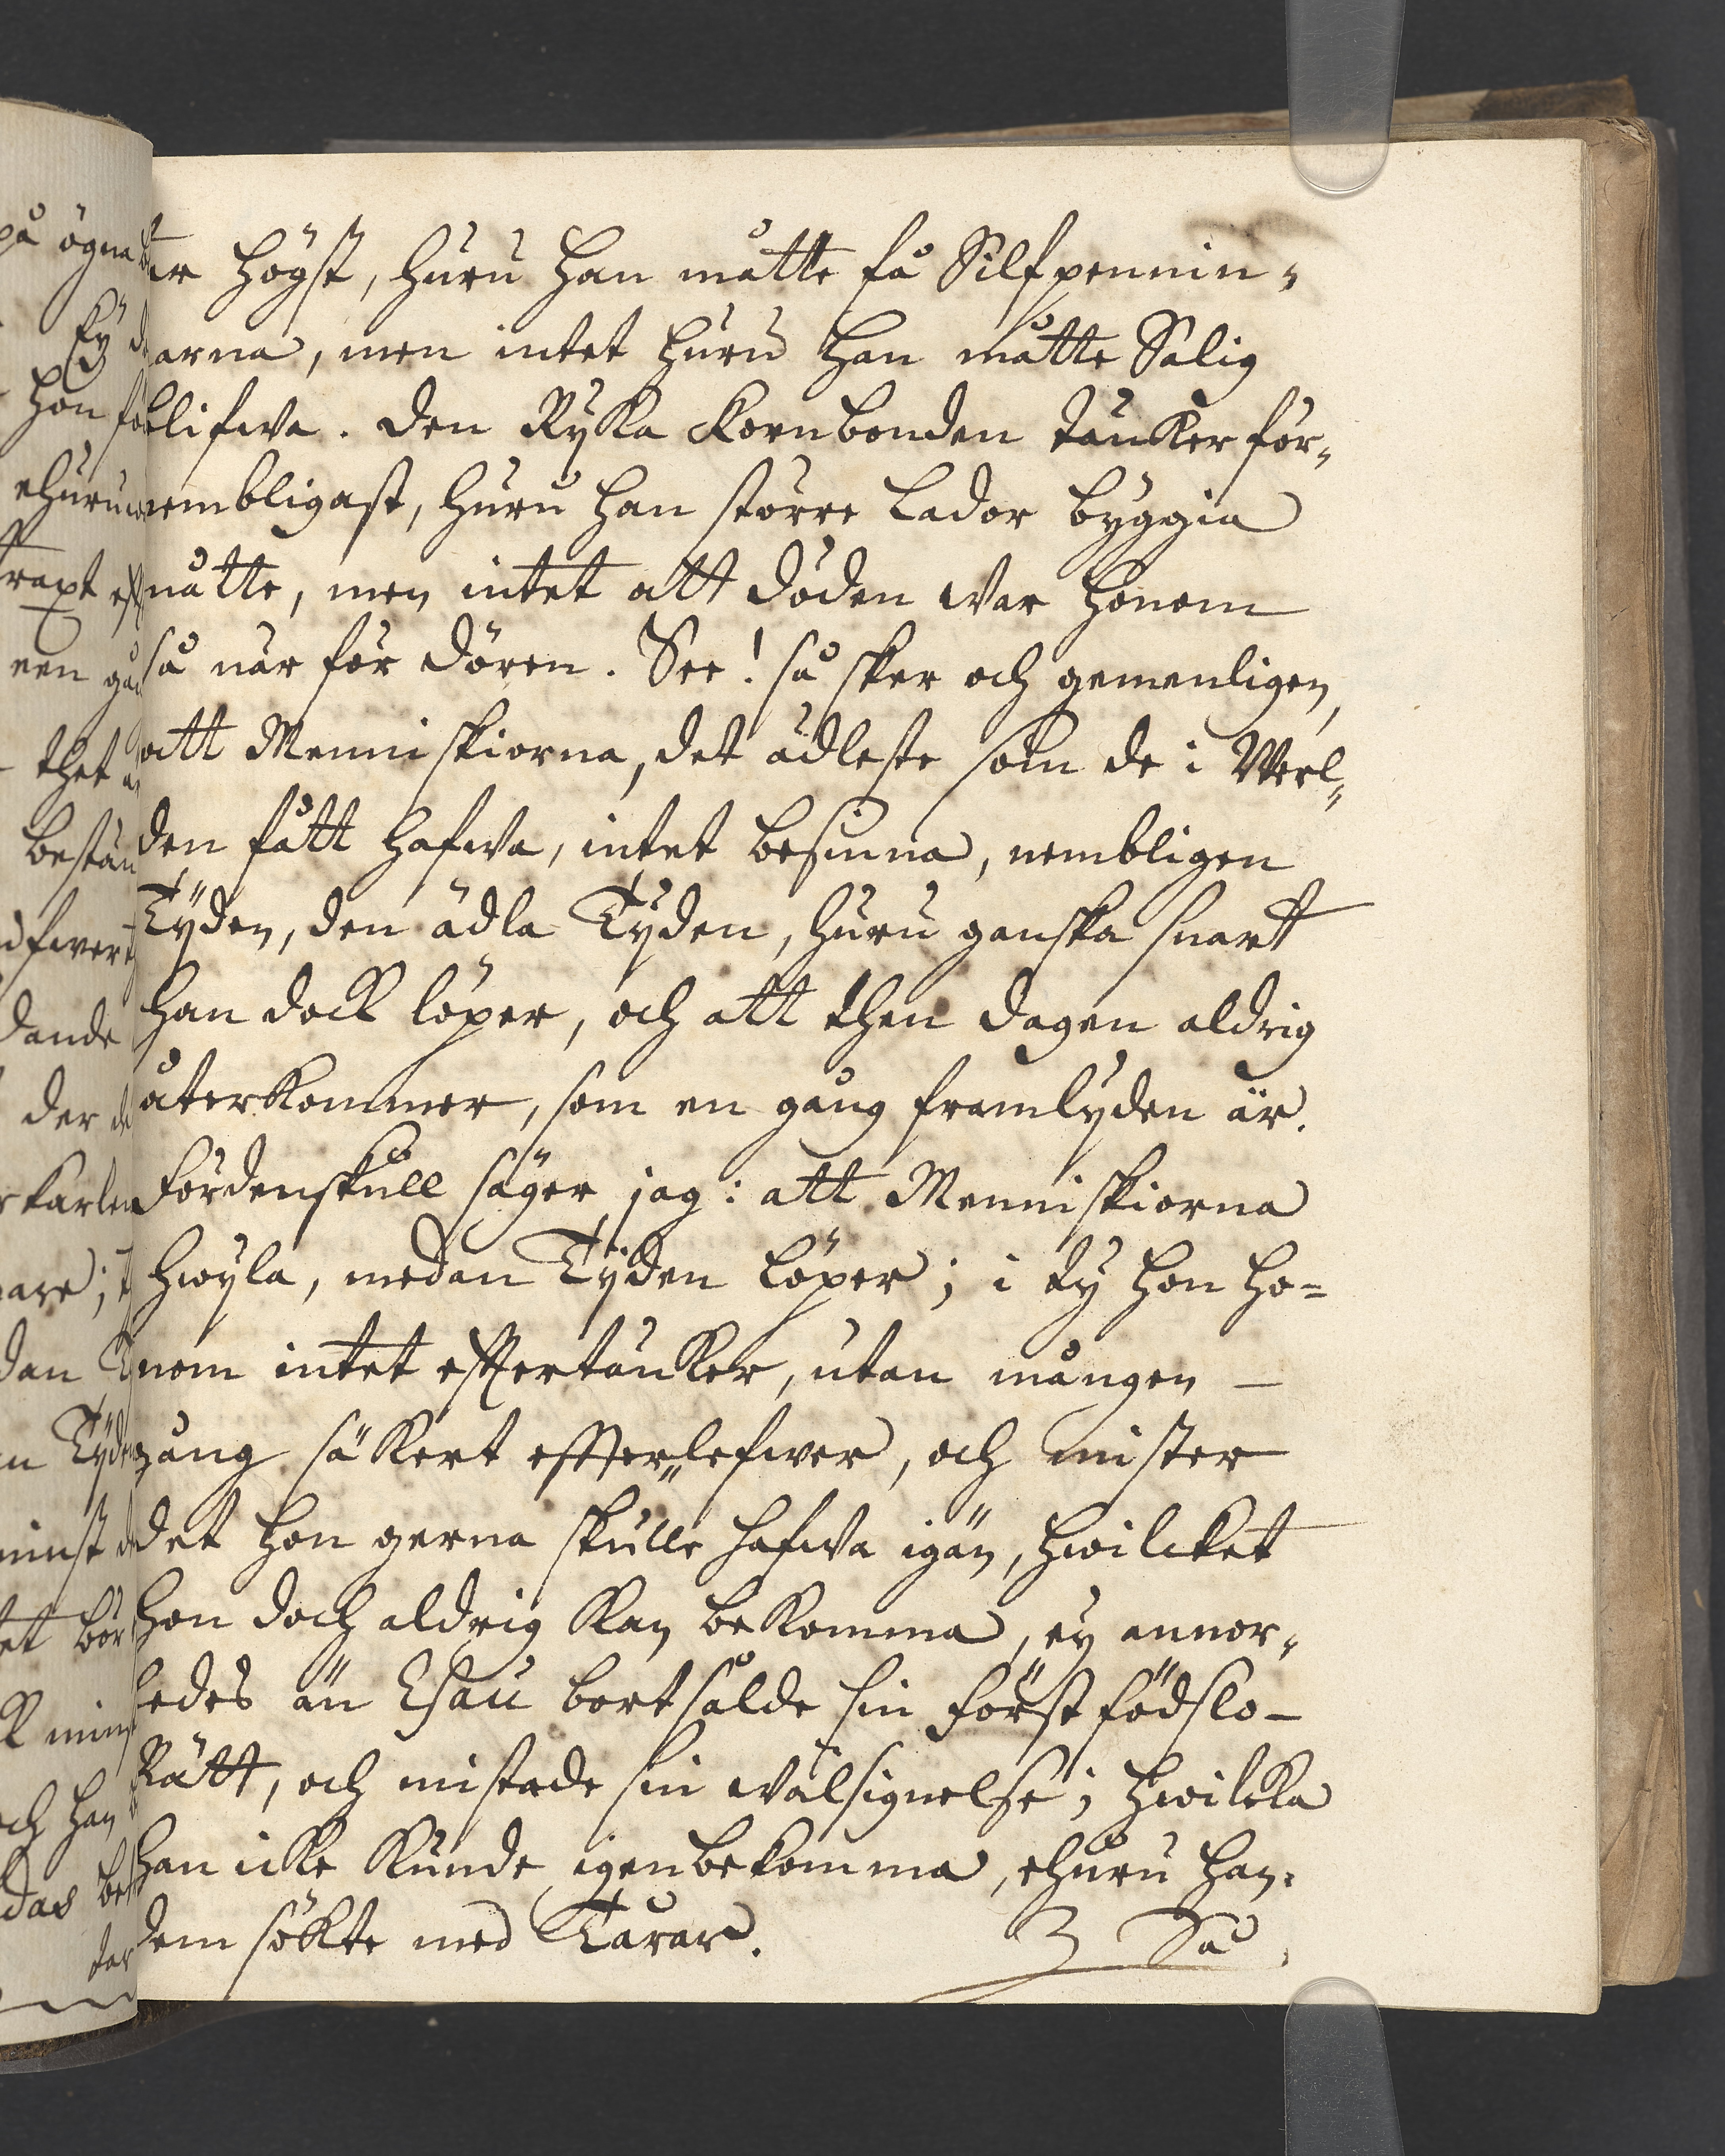 ter högst, huru han måtte få Silfpennin-
arna, men intet huru han måtte Salig
blifwa. den Ryka Kornbonden täncker för-
nembligast, huru han större Lador byggia
måtte, men intet att döden war honom
så når för dören. See! så sker och gemenligen,
att Menniskiorna, det ädleste som de i Werl-
den fått hafwa, intet besinna, nembligen
Tÿden, den ädla Tÿden, huru ganska snart
han dock löper, och att then dagen aldrig
återkommer, som en gång framlyden är.
Fördenskull säger jag: att Menniskiorna
hwÿla, medan Tÿden löper; i ty hon ho-
nom intet efftertäncker, utan mången
gång säkert effterlefwer, och mister
det hon gerna skulle hafwa igän, hwilcket
hon doch aldrig kan bekomma, ey annor-
ledes än Esau bortsålde sin förstfödslo-
Rätt, och mistade sin wälsignelse; hwilcka
han icke kunde igenbekomma, ehuru han
dem sökte med Tårar.
3 Så